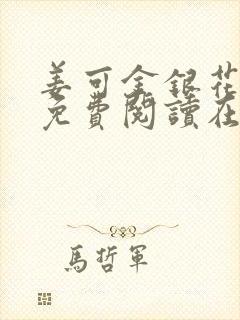 姜可金銀花
免費閱讀在
馬哲軍